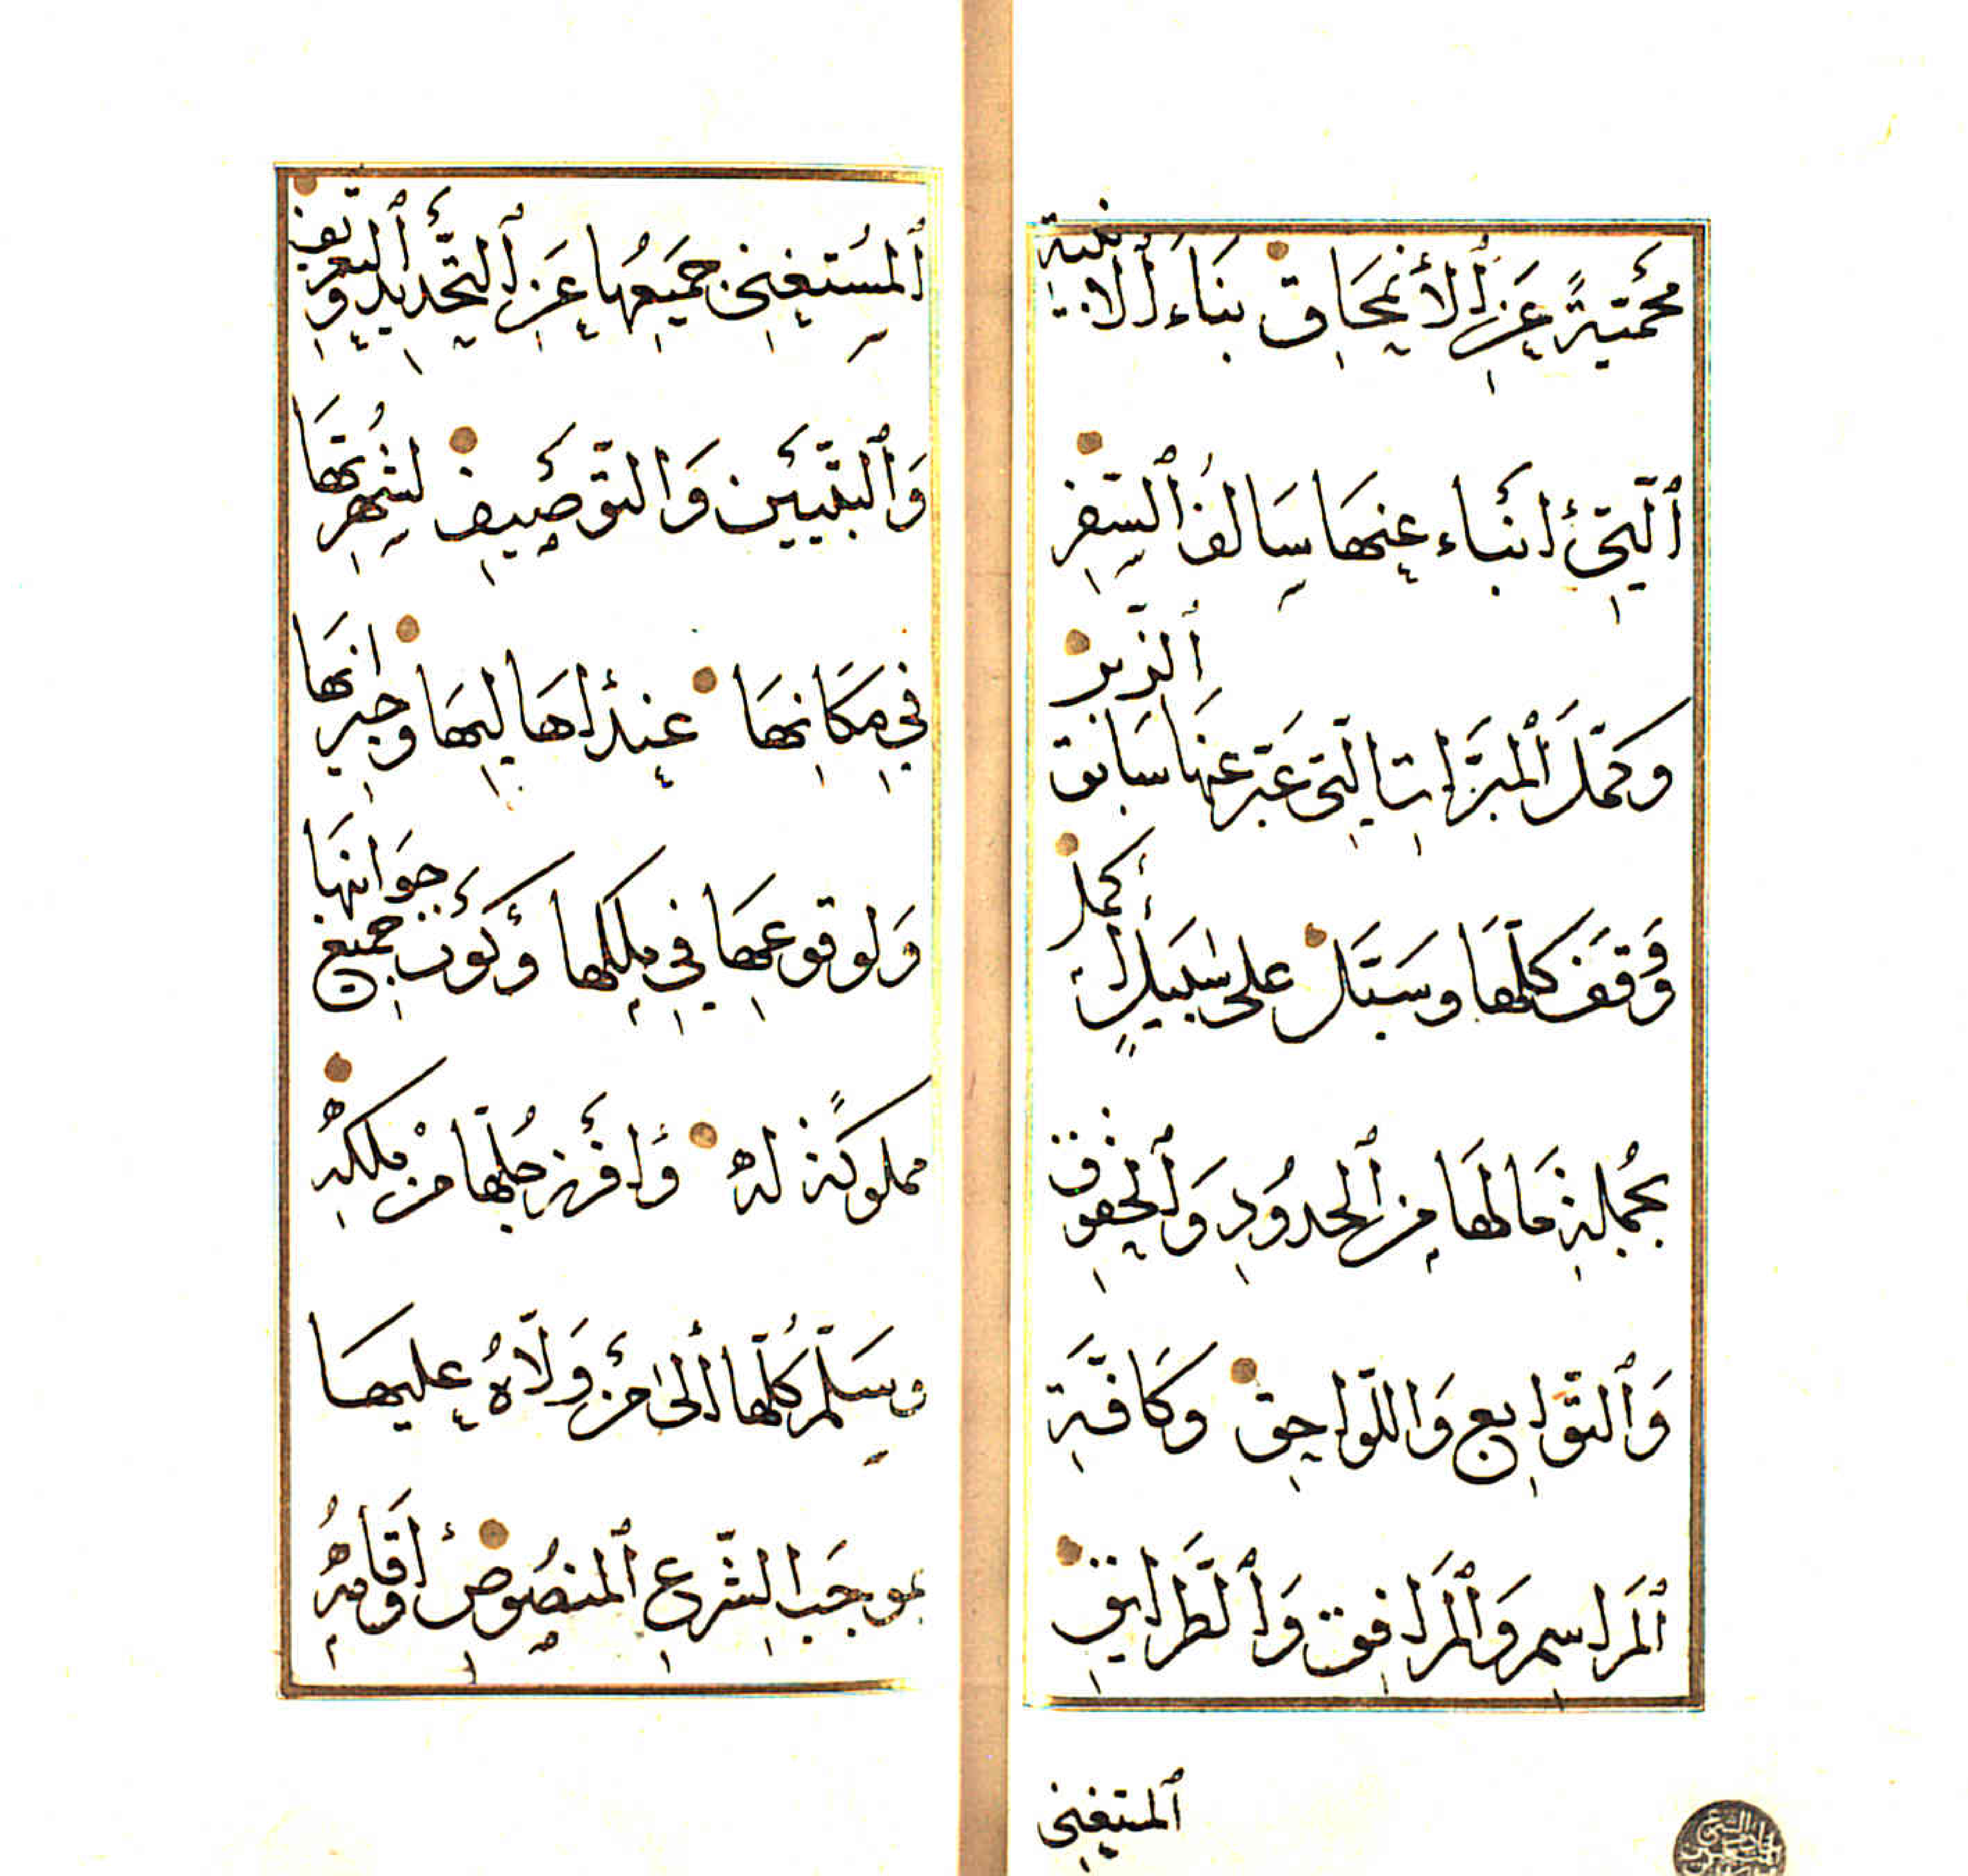 محمية عن الانمحاق بناء الابنية
التي انباء عنها سالف السفر
وكمل المبرات التي عبر عنها سابق الزبر
ووقف كلها وسبل على سبيل اكمل
بجملة مالها من الحدود والحقوق
والتوابع واللواحق وكافة
المراسم والمرافق والطرايق
المستغنى
المستغنى جميعها عن التحديد والتعريف
والتبيين والتوصيف لشهرتها
في مكانها عند اهاليها وجيرانها
ولوقوعها في ملكها وكون جميع جوانبها
مملوكة له وافرز كلها من ملكه
وسلم كلها الى من ولاه عليها
بموجب الشرع المنصوص اقامه